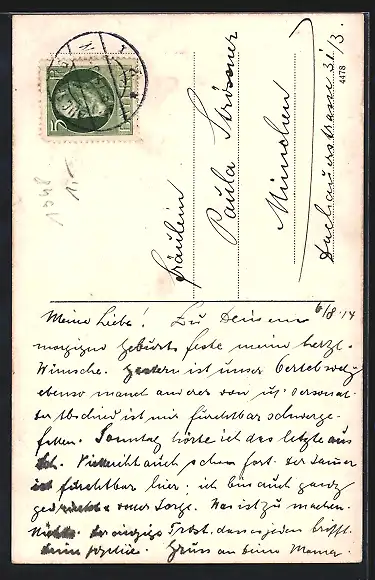 BAYERN
5
1548
1.-
Fräulein
Paula Strössner
München
Dachauerstrasse 31/3.
4478
6/8.14
Meine Liebe! Zu Deinem
morgigen Geburtsfeste meine herzl.
Wünsche. Gestern ist unser weg,
ebenso manch anderer von uns.
der Abschied ist mir fürchtbar schwerge-
fallen. Sonntag hörte ich das letzte aus
Vielleicht auch schon fort. der Jammer
ist fürchtbar hier; ich bin auch ganz
gedrückt u. voller Sorge. Was ist zu machen.
Nichts. der einzige Trost, dass es jeden trifft.
Gruss an deine Mama